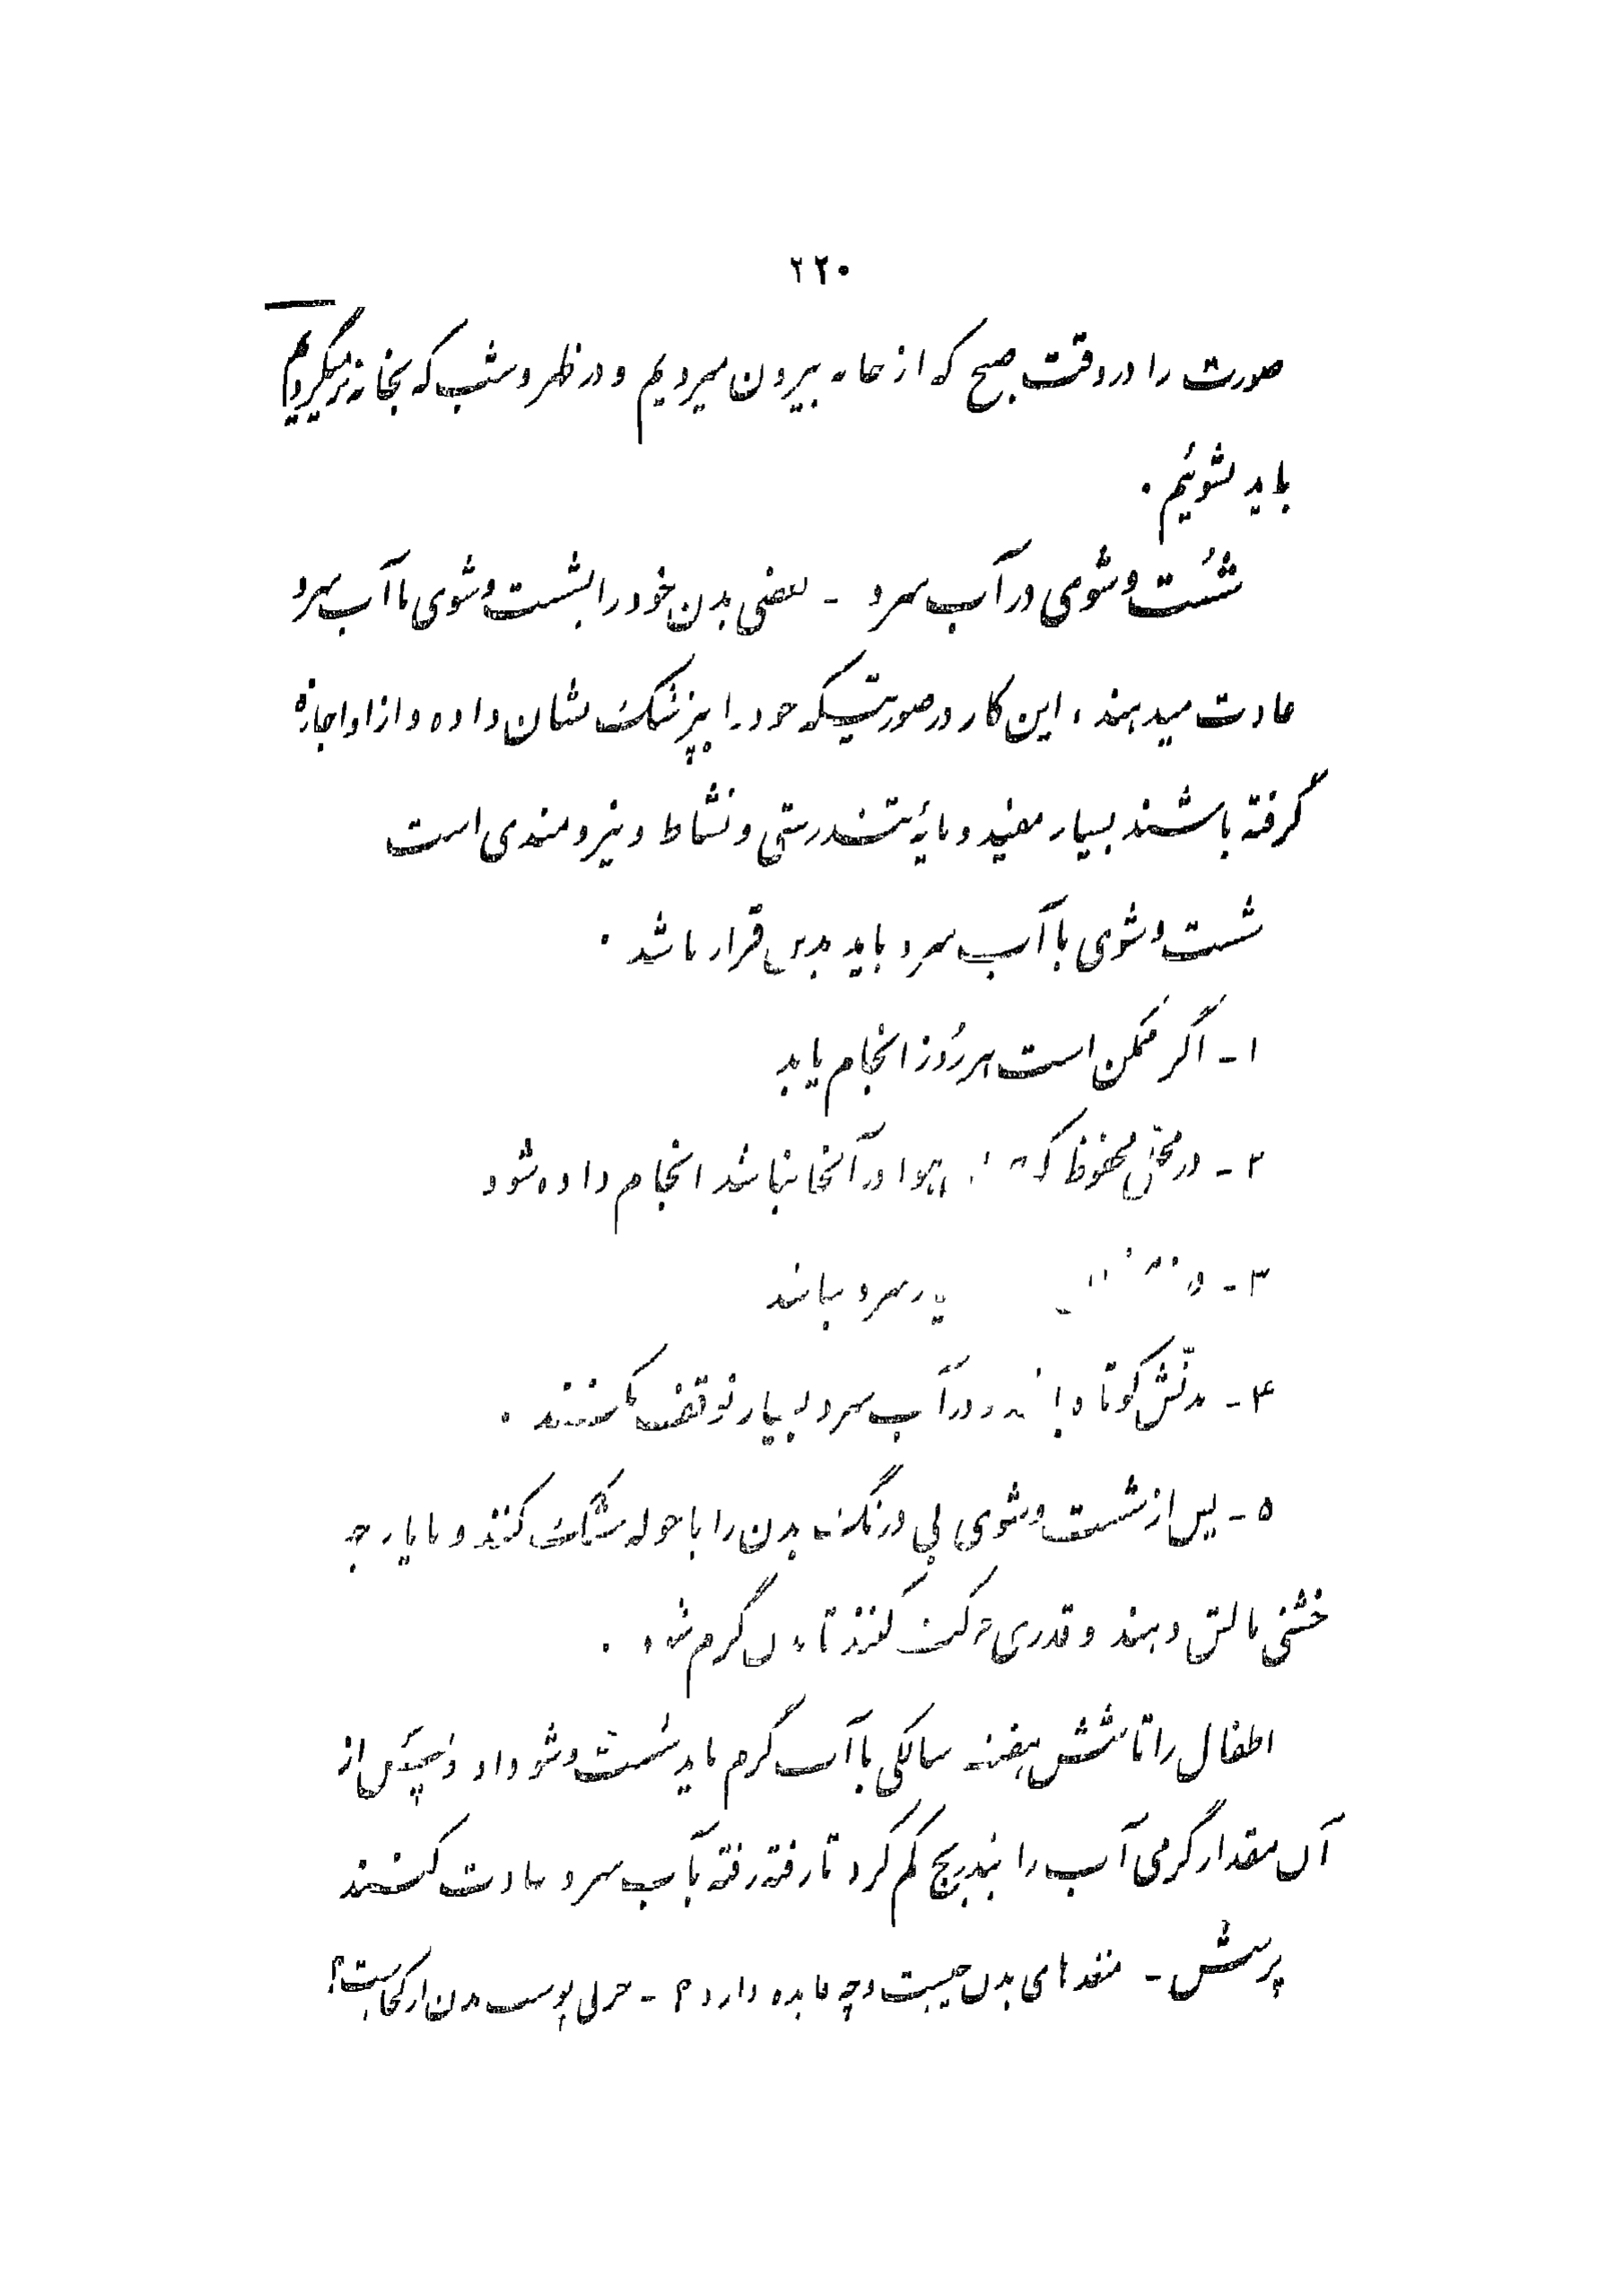 ۲۲۰
صورت را در وقت صبح که از خانه بیرون میرویم و در ظهر و شب که بخانه برمیگردیم
باید بشوئیم .
شُست و شوی در آب سرد - بعضی بدن خود را بشست و شوی با آب سرد
عادت میدهند ، این کار در صورتیکه خود را بپزشک نشان داده و از او اجازه
گرفته باشند بسیار مفید و مایهٔ تندرستی و نشاط و نیرومندی است
شست و شوی با آب سرد باید بدین قرار باشد .
۱ - اگر ممکن است هر رُوز انجام یابد
۲ - در محلّ محفوظ که هوا در آنجا نباشد انجام داده شود
۳ - سرد بیابند
۴ - مدّتش کوتاه در آب سرد بسیار توقف نکنند .
۵ - پس از شست و شوی بی درنگ بدن را با حوله خشک کنند و با پارچه
خشنی مالش دهند و قدری حرکت کنند تا بدن گرم شود .
اطفال را تا شش هفته سالگی با آب گرم باید شست و شو داد و پس از
آن مقدار گرمی آب را بتدریج کم کرد تا رفته رفته بآب سرد عادت کنند
پرسش - منفذهای بدن چیست و چه فایده دارد ؟ - چربی پوست بدن از کجاست ؟